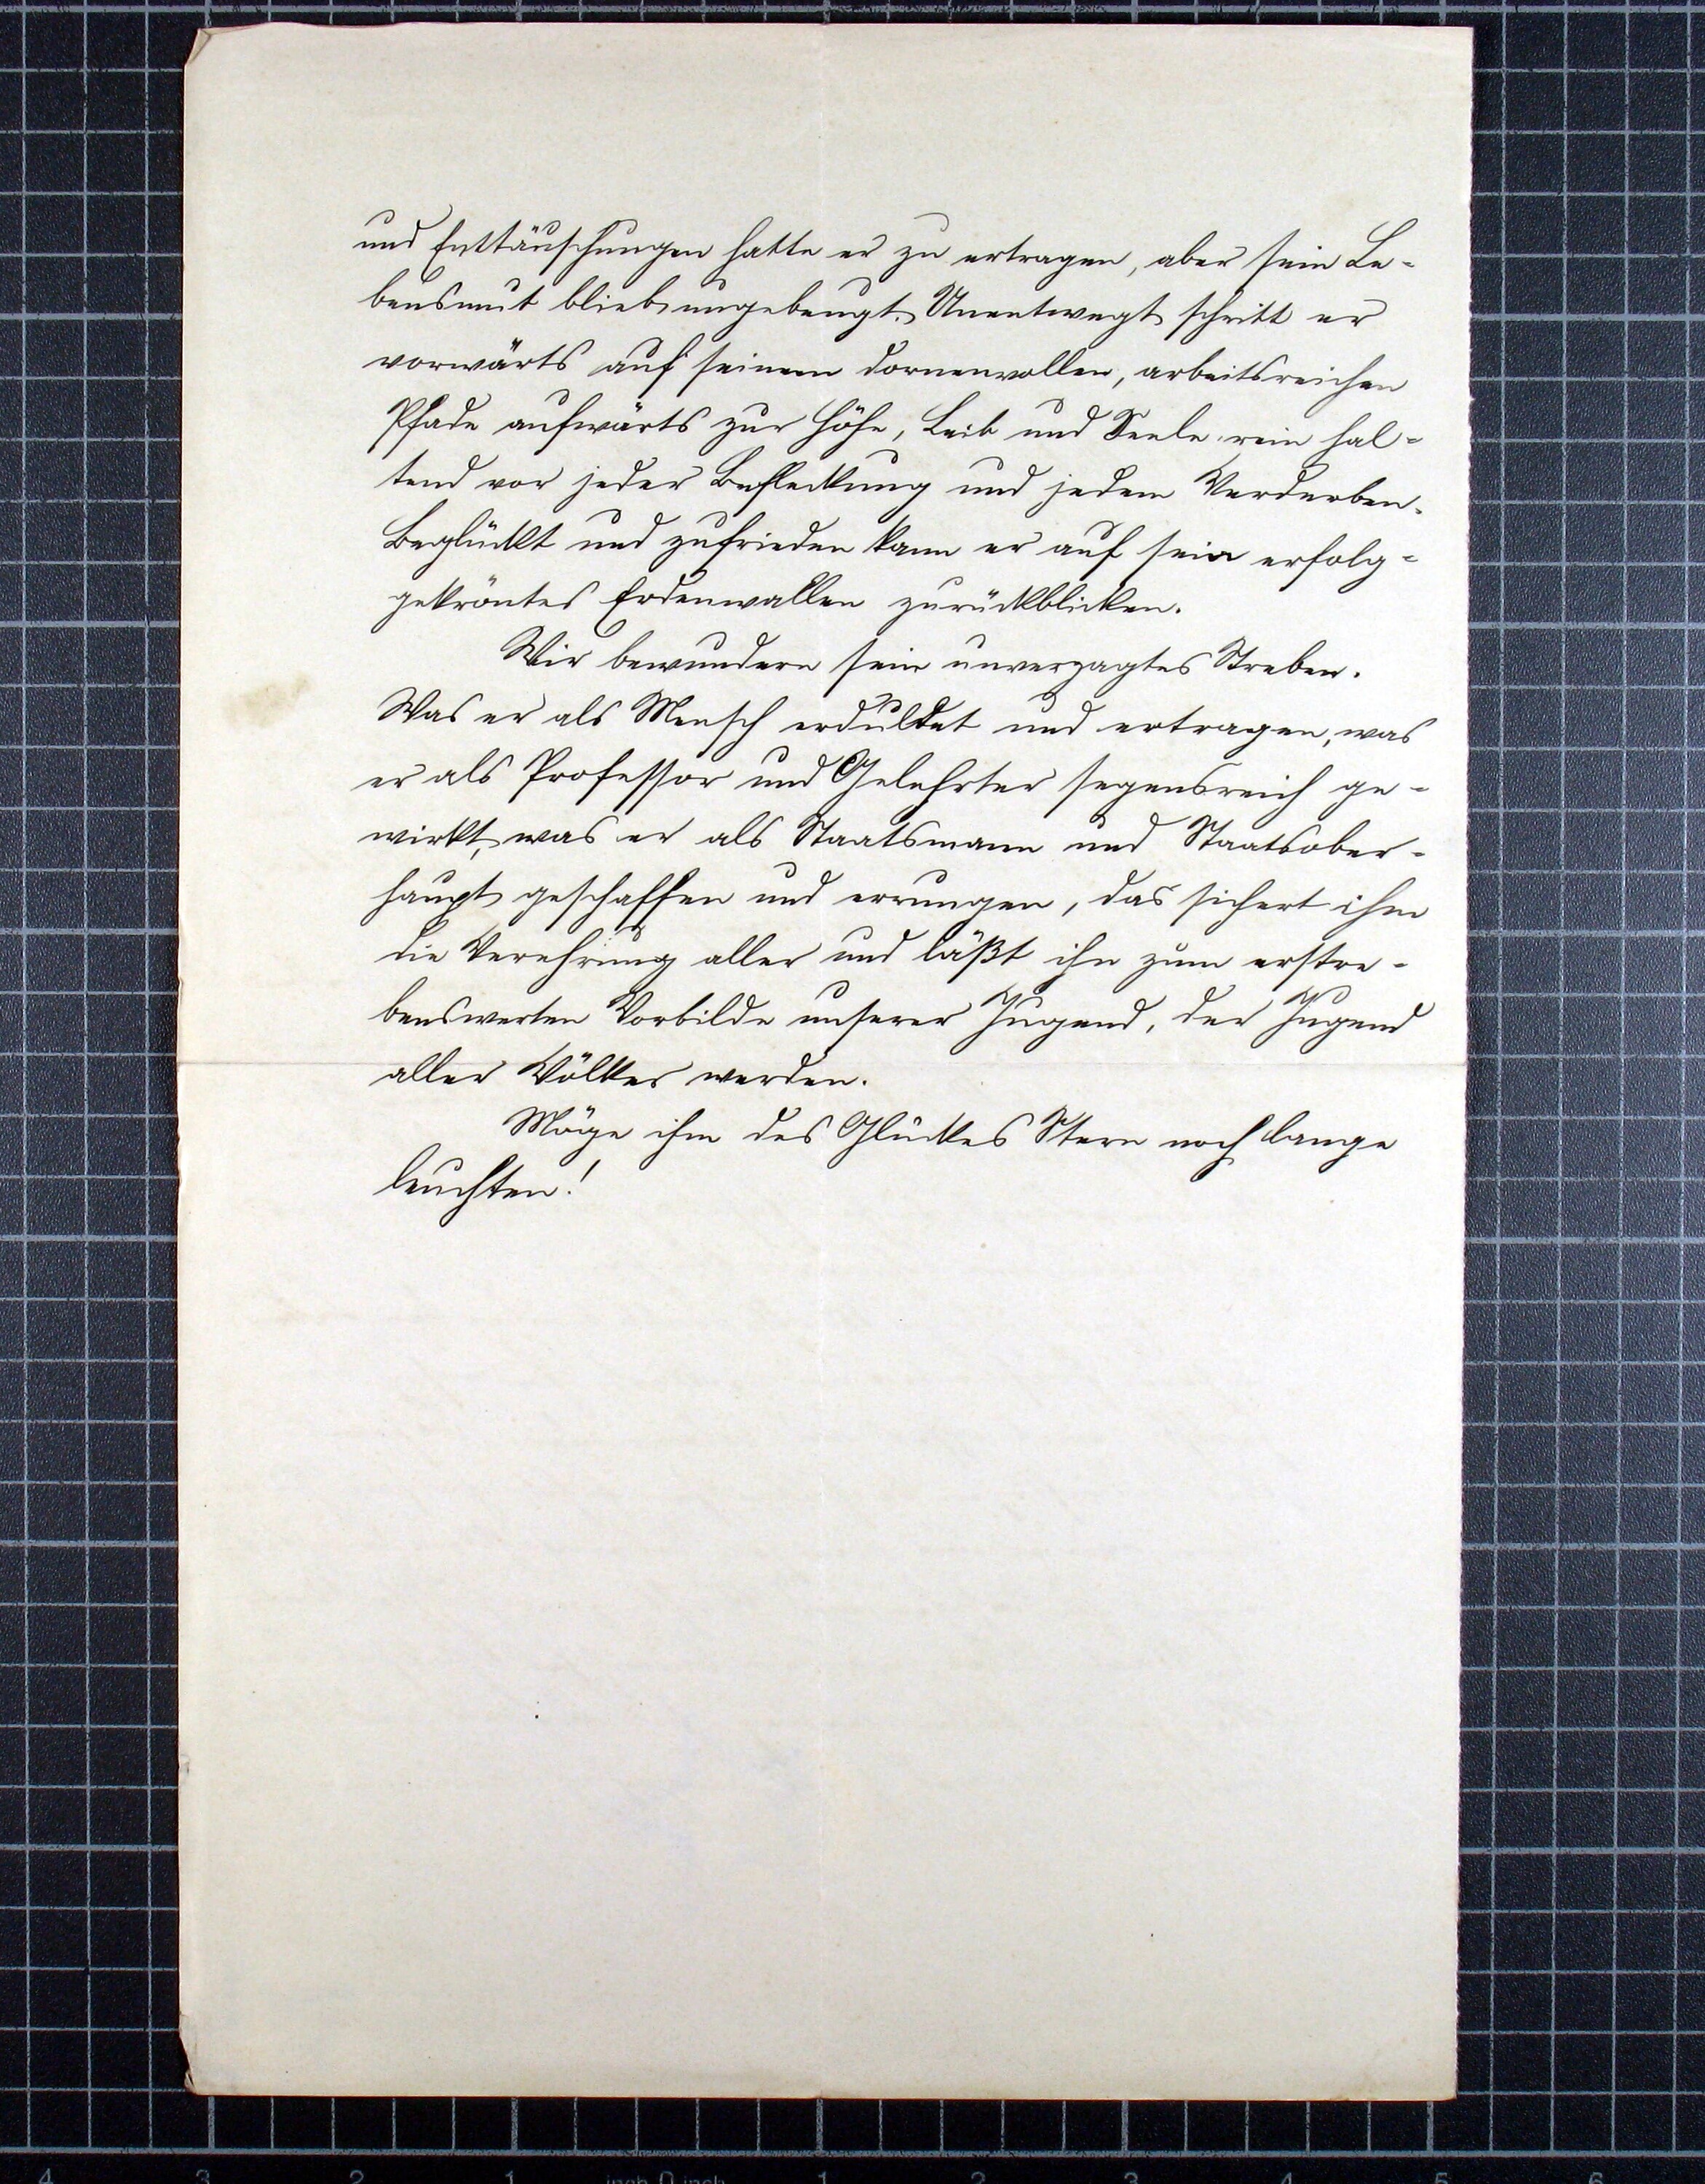 und Enttäuschungen hatte er zu ertragen, aber sein Le-
bensmut blieb ungebeugt. Unentwegt schritt er
vorwärts auf seinem dornenvollen, arbeitsreichen
Pfade aufwärts zur Höhe, Leib und Seele rein hal-
tend vor jeder Befleckung und jedem Verderben.
Beglückt und zufrieden kann er auf sein erfolg-
gekröntes Erdenwallen zurückblicken.
Wir bewundern sein unverzagtes Streben.
Was er als Mensch erduldet und ertragen, was
er als Professor und Gelehrter segensreich ge-
wirkt, was er als Staatsmann und Staatsober-
haupt geschaffen und errungen, das sichert ihm
die Verehrung aller und läßt ihn zum erstre-
benswerten Vorbilde unserer Jugend, der Jugend
aller Völker werden.
Möge ihm des Glückes Stern noch lange
leuchten!
4 3 2 1 inch 0 inch 1 2 3 4 5 6